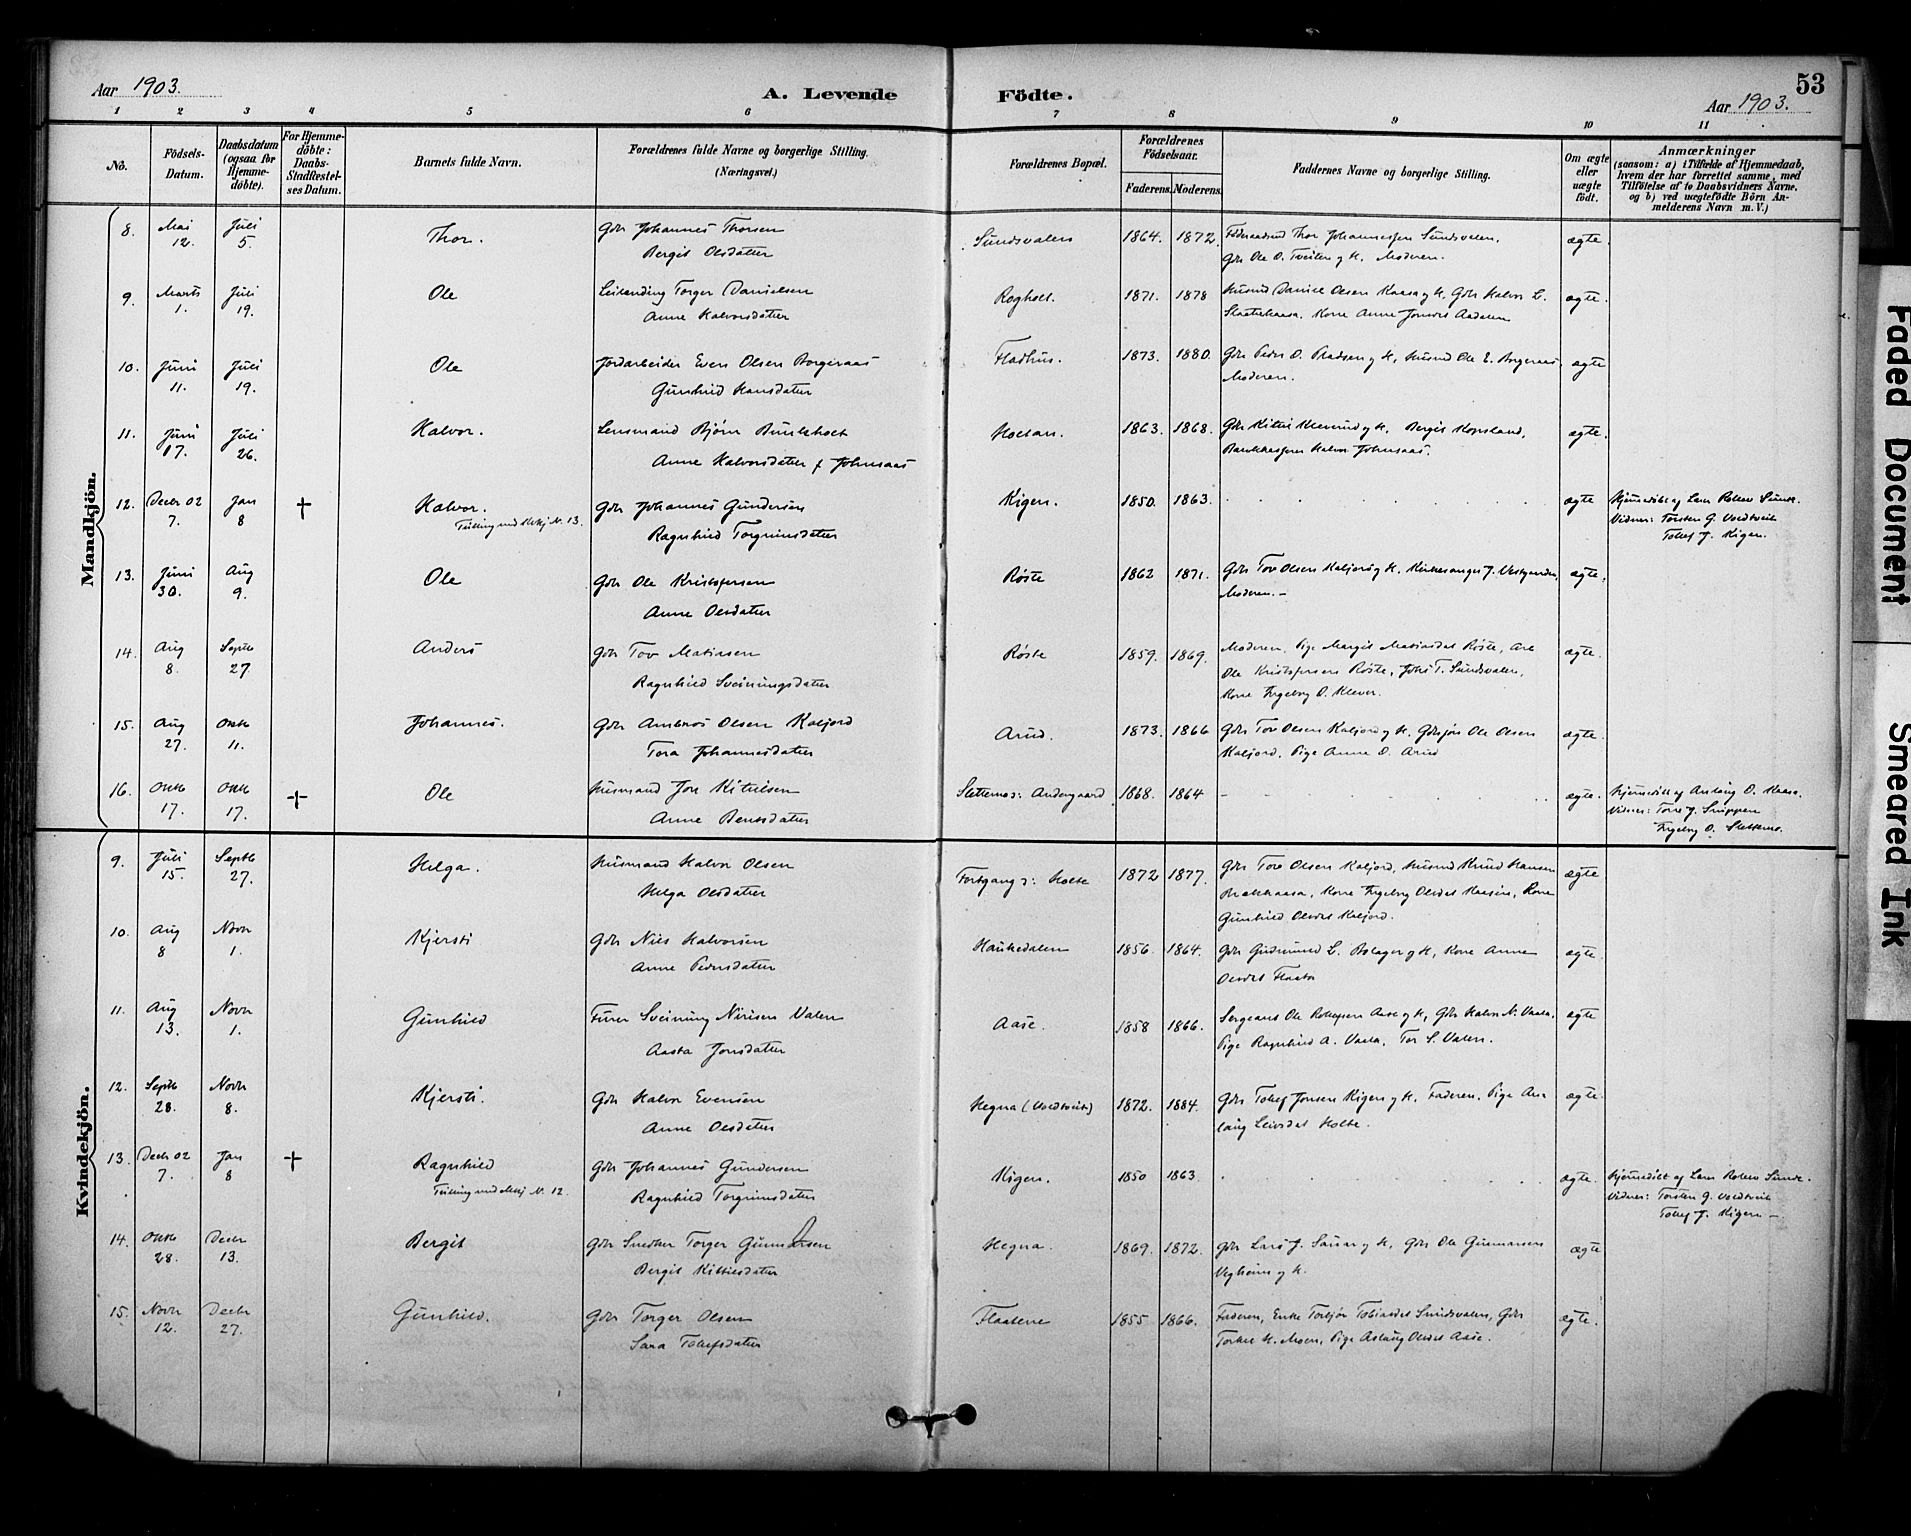 Aar 1903.
A. Levende Fødte.
53
Aar 1903.
1 2 3 4 5 6 7 8 9 10 11
No.
Födsels-
Datum.
Daabsdatum
(ogsaa for
Hjemme-
döbte).
For Hjemme-
döbte:
Daabs-
Stadfæstel-
ses Datum.
Barnets fulde Navn.
Forældrenes fulde Navne og borgerlige Stilling.
(Næringsvei.)
Forældrenes Bopæl.
Forældrenes
Födselsaar.
Faderens. Moderens.
Faddernes Navne og borgerlige Stilling.
Om ægte
eller
uægte
födt.
Anmærkninger
(saasom: a) i Tilfælde af Hjemmedaab,
hvem der har forrettet samme, med
Tilföielse af to Daabsvidners Navne,
og b) ved uægtefödte Börn An-
melderens Navn m. V.)
Mandkjön.
8. Mai 12. Juli 5. Thor. Gdr Johannes Thorsen Sundsvalen 1864. 1872. Thor Johannessen Sundsvalen, ægte.
Bergit Olsdatter Gdr Ole O. Tveiten g H. Moderen.
9. Marts 1. Juli 19. Ole Leilending Torger Danielsen Rogholt. 1871. 1878 Husmd Daniel Olsen Kaasa g H, Gdr Halvor L. ægte.
Anne Halvorsdatter Kone Anne Aadalen
10. Juni 11. Juli 19. Ole Jordarbeider Even Olsen Borgeraas Fladhus. 1873. 1880. Gdr Peder O. g H, Husmd Ole E. Borgeraas, ægte
Gunhild Hansdatter Moderen.
11. Juni 17. Juli 26. Halvor. Lensmand Bjørn Bunkholt Holtan. 1863. 1868. Gdr Kittil Kleverud g H, Bergit Kopsland, ægte.
Anne Halvorsdatter f Johnsaas Halvor Johnsaas.
12. Decbr 02 7. Jan 8 † Halvor. Gdr Johannes Gundersen Kigen. 1850. 1863. ægte Hjemmedøbt af Lars Rolleiv Sunde.
Tvilling med Kvkj No. 13. Ragnhild Torgrimsdatter Vidner: Torsten G. Voldtveit
Tollef J. Kigen.
13. Juni 30. Aug 9. Ole Gdr Ole Kristofersen Røste 1862 1871. Gdr Tov Olsen Kaljord g H, Kirkesanger J. Vestgarden, ægte.
Anne Olsdatter Moderen.-
14. Aug 8. Septb 27 Anders Gdr Tov Matiasen Røste 1859. 1869. Moderen, Pige Margit Matiasdat Røste, ægte.
Ragnhild Sveinungsdatter Ole Kristofersen Røste, Johs T. Sundsvalen,
Kone Ingeborg O. Klever.
15. Aug 27. Oktb 11. Johannes. Gdr Ambros Olsen Kaljord Arud. 1873. 1866 Gdr Tov Olsen Kaljord g H, Ole Olsen ægte.
Tora Johannesdatter Kaljord, Pige Anne O. Arud
16. Oktb 17. Oktb 17. † Ole Husmand Jon Kittilsen Slettemo: Andergaard 1868. 1864 ægte. Hjemmedøbt af Anlaug O. Kaasa.
Anne Bentsdatter Vidner: Tone J. Snippen
Ingeborg O. Slettemo.
Kvindekjön.
9. Juli 15. Septb 27. Helga. Husmand Halvor Olsen Fortgang: Holte 1872 1877. Gdr Tov Olsen Kaljord, Husmd Knud Hansen ægte
Helga Olsdatter Kone Ingeborg Olsdat Kaasin, Kone
Gunhild Olsdat Kaljord.
10. Aug 8 Novbr 1. Kjersti Gdr Nils Halvorsen Haukedalen 1856. 1864. Gdr Gudmund L. Bolager g H, Kone Anne ægte.
Anne Pedersdatter Olsdat Flaata
11. Aug 13. Novbr 1. Gunhild Furer Sveinung Nirisen Valen Aase. 1858 1866. Sergeant Ole Rolleivsen Aase g H, Gdr Halvor N. Vaala, ægte
Aasta Jonsdatter Pige Ragnhild A. Vaala, Tor S. Valen.
12. Septb 28. Novbr 8. Kjersti. Gdr Halvor Evensen Hegna (Voldtveit) 1872. 1884. Gdr Tollef Jonsen Kigen g H, Faderen, Pige An- ægte.
Anne Olsdatter laug Leivsdat Holte.
13. Decbr 02 7. Jan 8 † Ragnhild Gdr Johannes Gundersen Kigen. 1850 1863 ægte. Hjemmedøbt af Lars Rolleiv Sunde.
Tvilling med Mkj No. 12. Ragnhild Torgrimsdatter Vidner: Torsten G. Voldtveit
Tollef J. Kigen -
14. Oktb 28. Decbr 13. Bergit Gdr Snedker Torger Gunnarsen Hegna. 1869. 1872. Gdr Lars J. Sauar g H, Gdr Ole Gunnarsen ægte
Bergit Kittilsdatter Vegheim g H.
15. Novbr 12. Decbr 27. Gunhild. Gdr Torger Olsen Flaatene 1855 1866. Faderen, Enke Torbjør Tobiasdat Sundsvalen, Gdr ægte.
Sara Tollefsdatter Torkel H. Moen, Pige Aslaug Olsdat Aase.
Faded Document
Smeared Ink